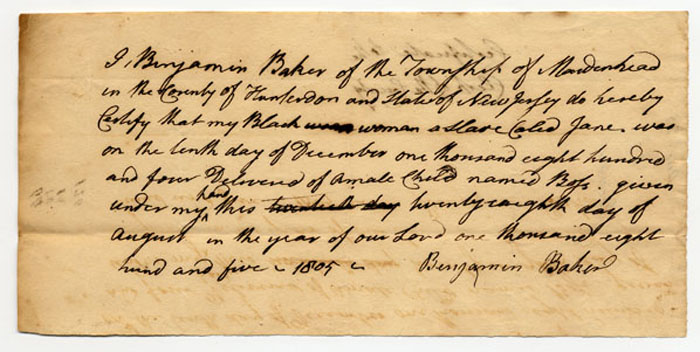 I, Benjamin Baker of the Township of Maidenhead
in the County of Hunterdon and State of New Jersey do hereby
Certify that my Black woman a slave Caled Jane was
on the tenth day of December one thousand eight hundred
and four Delivered of a male Child named Bofs. given
under my hand this twentieth day twentyeaighth day of
August in the year of our Lord one thousand eight
hund and five ~ 1805 ~ Benjamin Baker